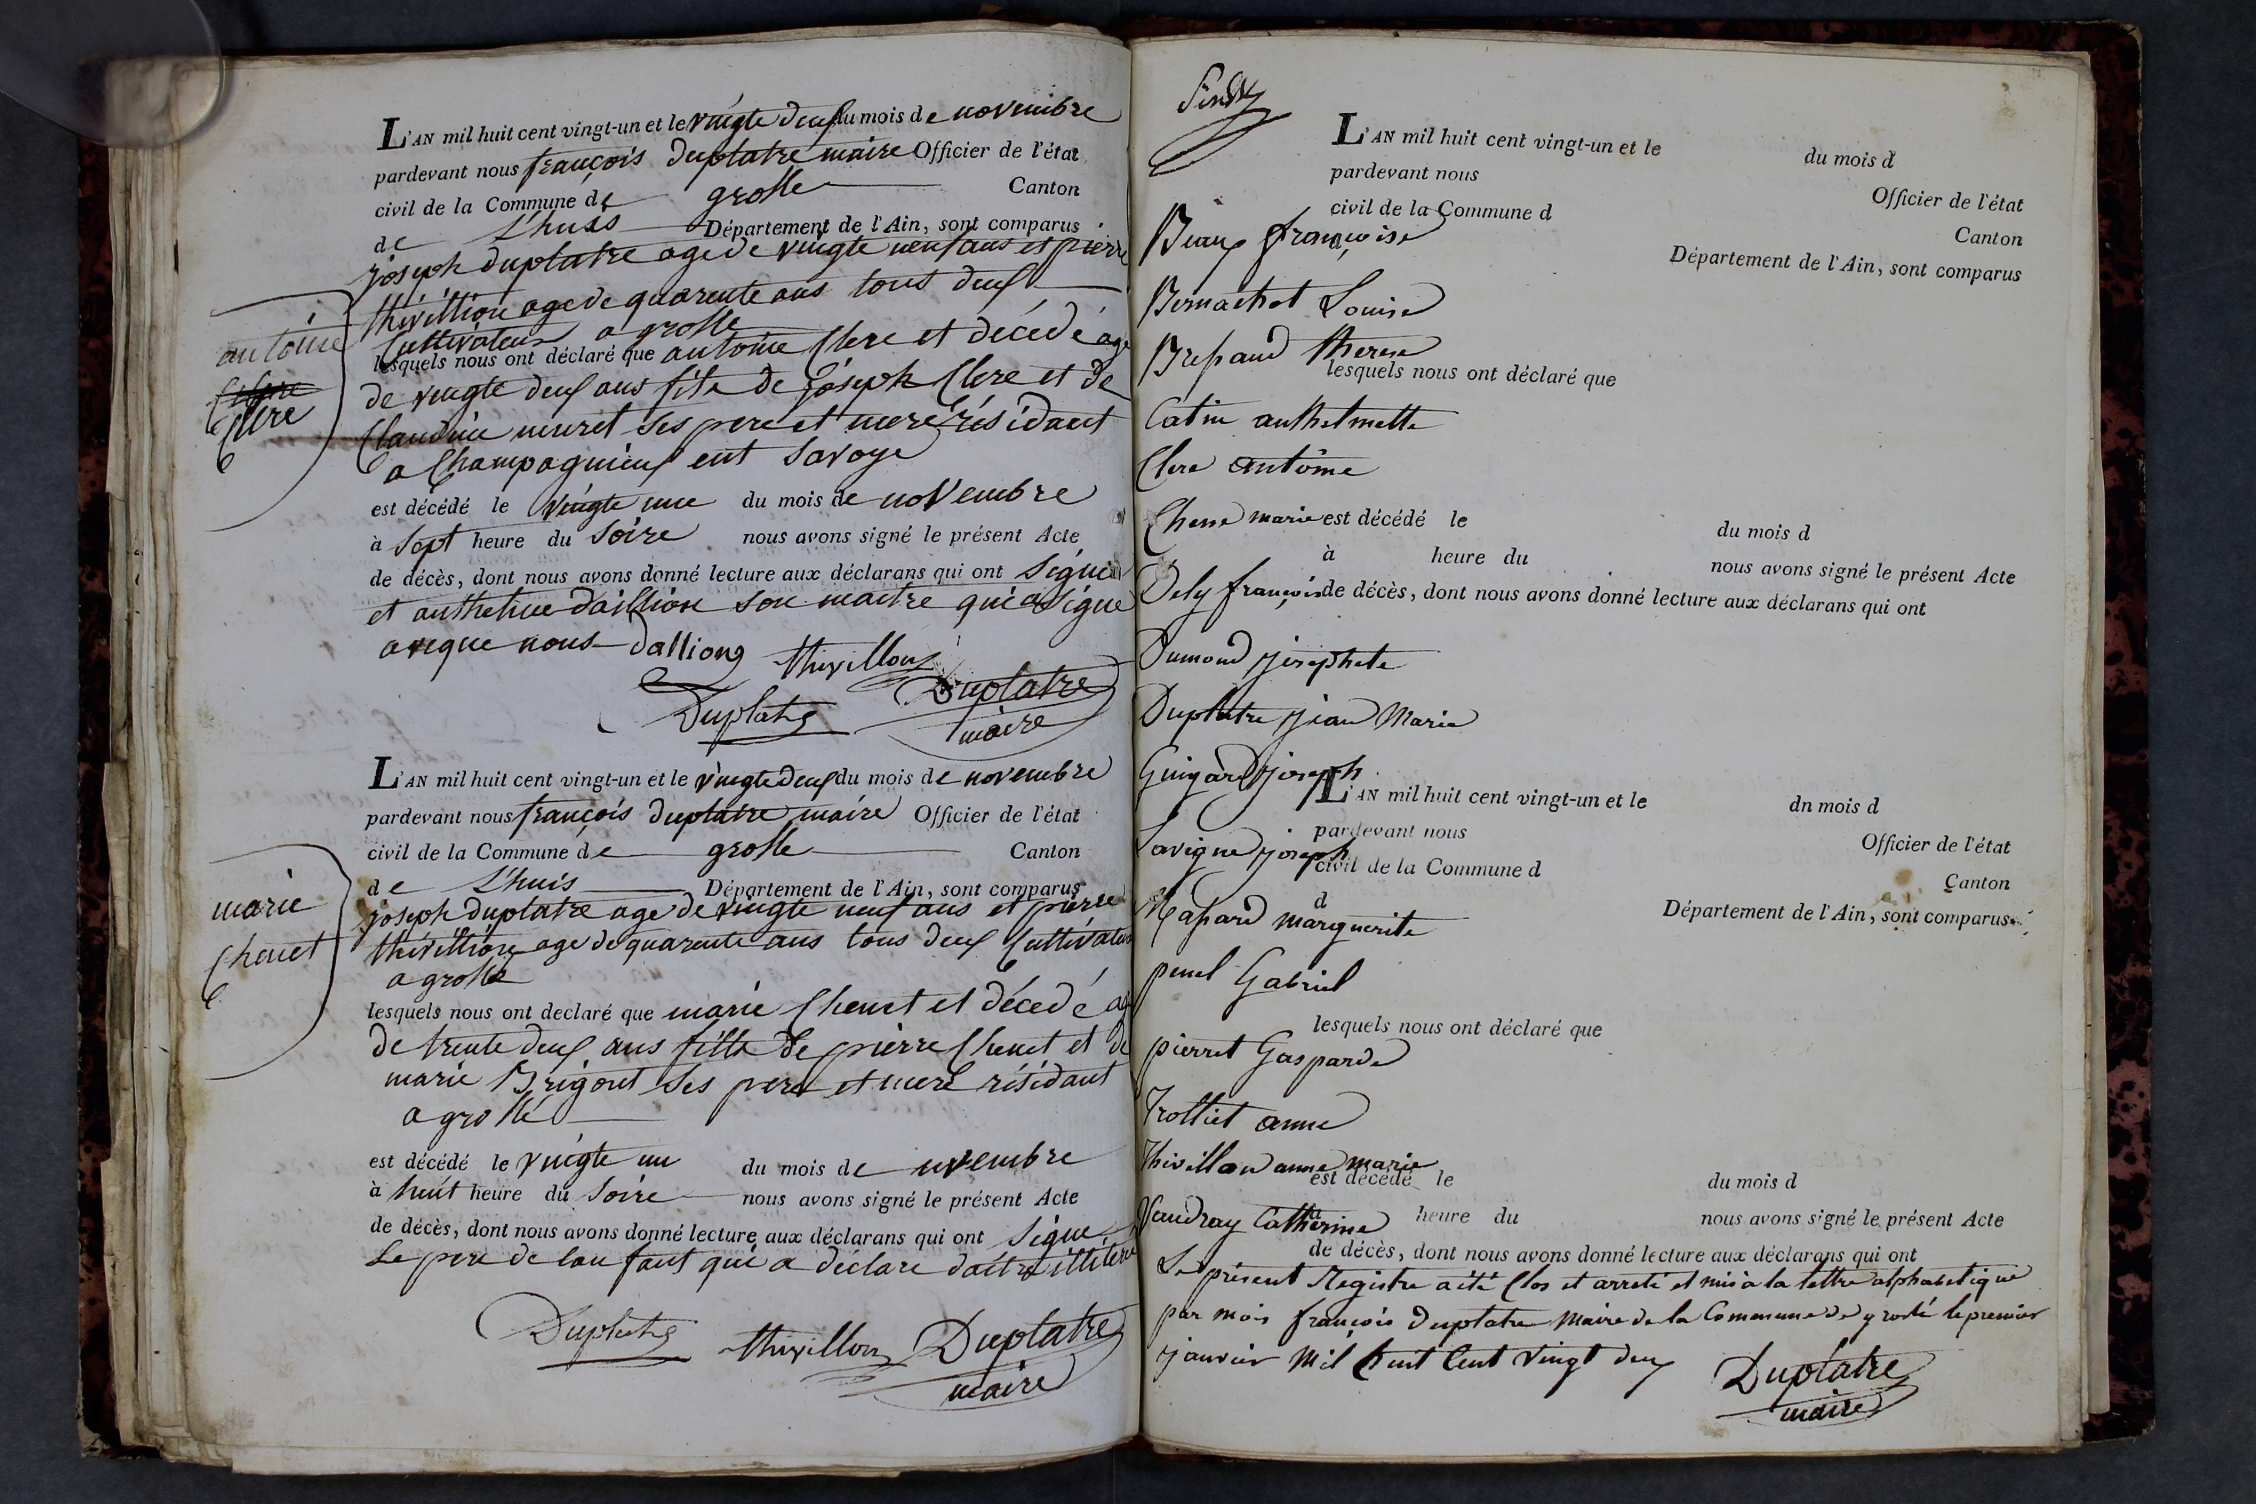 L'AN mil huit cent vingt-un et le vingte deux du mois de novembre
pardevant nous françois duplatre maire Officier de l'état
civil de la Commune de grolle Canton
de Lhuis Département de l'Ain, sont comparus
joseph duplatre age de vingte neuf ans et pierre
thivillion age de quarente ans tous deux
Cultivateur a grolle
lesquels nous ont déclaré que antoine Clere et décedé age
de vingte deux ans fils de joseph Clere et de
Claudine muret ses pere et mere résidant
a Champagnieux ent Savoye
est décédé le vingte une du mois de novembre
à sept heure du soire nous avons signé le présent Acte
de décès, dont nous avons donné lecture aux déclarans qui ont signé
et anthelme daillion son maitre qui a signe
aveque nous dallion thivillon Duplatre
Duplatre maire
antoine
Clere
L'AN mil huit cent vingt-un et le vingte deux du mois de novembre
pardevant nous françois duplatre maire Officier de l'état
civil de la Commune de grolle Canton
de Lhuis Département de l'Ain, sont comparus
joseph duplatre age de vingte neuf ans et pierre
thivillion age de quarente ans tous deux Cultivateur
a grolle
lesquels nous ont declaré que marie Chenet et décedé age
de trente deux ans fille de pierre Chenet et de
marie Brigont ses pere et mere résidant
a grolle
est décédé le vingte un du mois de novembre
à huit heure du soire nous avons signé le présent Acte
de décès, dont nous avons donné lecture aux déclarans qui ont signe
Le pere de lan fant qui a déclare daitre illitere
Duplatre thivillon Duplatre
maire
marie
Chenet
L'AN mil huit cent vingt-un et le du mois d
pardevant nous Officier de l'état
civil de la Commune d Canton
d Département de l'Ain, sont comparus
Beaux françoise
Bernachot Louise
Brepaud therese
lesquels nous ont déclaré que
Catin anthelmette
Clere antoine
Chene marie est décédé le du mois d
à heure du nous avons signé le présent Acte
Dely françois de décès, dont nous avons donné lecture aux déclarans qui ont
Dumond josephete
Duplatre jean Marie
Guigard joseph
L'AN mil huit cent vingt-un et le dn mois d
pardevant nous Officier de l'état
Lavigne joseph
civil de la Commune d Canton
d Département de l'Ain, sont comparus
Mapard marguerite
penel Gabriel
lesquels nous ont déclaré que
pierret Gasparde
Trolliet anne
Thivillon anne marie
est décédé le du mois d
Vaudray Catherine
à heure du nous avons signé le présent Acte
de décès, dont nous avons donné lecture aux déclarans qui ont
Le présent Registre a été Clos et arreté et mis a la lettre alphabetique
par mois françois duplatre Maire de la Commune de grolé le premier
janvier Mil huit Cent vingt deux Duplatre
maire